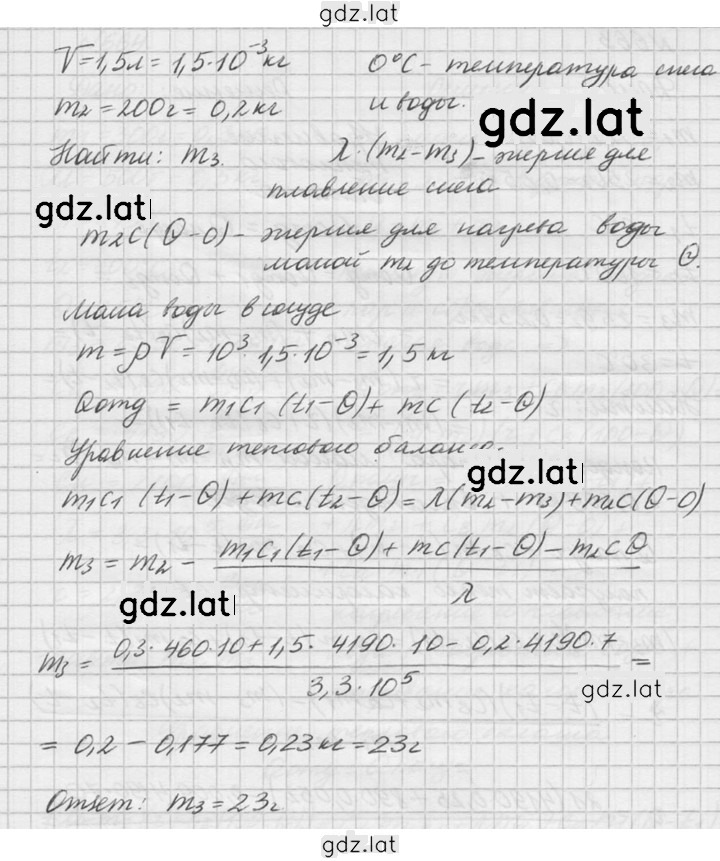 gdz.lat
V=1,5л=1,5·10⁻³кг
0°C - температура снега
m₂=200г=0,2кг
и воды.
gdz.lat
Найти: m₃.
λ·(m₂-m₃)-энергия для
плавление снега
gdz.lat
m₂c(Θ-0)- энергия для нагрева воды
массой m₂ до температуры Θ.
Масса воды в сосуде
m=ρV=10³·1,5·10⁻³=1,5кг
Qотд = m₁c₁(t₁-Θ)+mc(t₂-Θ)
Уравнение теплового баланса:
gdz.lat
m₁c₁(t₁-Θ)+mc(t₂-Θ)=λ(m₂-m₃)+m₂c(Θ-0)
m₃=m₂- m₁c₁(t₁-Θ)+mc(t₁-Θ)-m₂cΘ
λ
gdz.lat
m₃= 0,3·460·10+1,5·4190·10-0,2·4190·7 =
3,3·10⁵
gdz.lat
=0,2-0,177=0,23кг=23г
Ответ: m₃=23г
gdz.lat